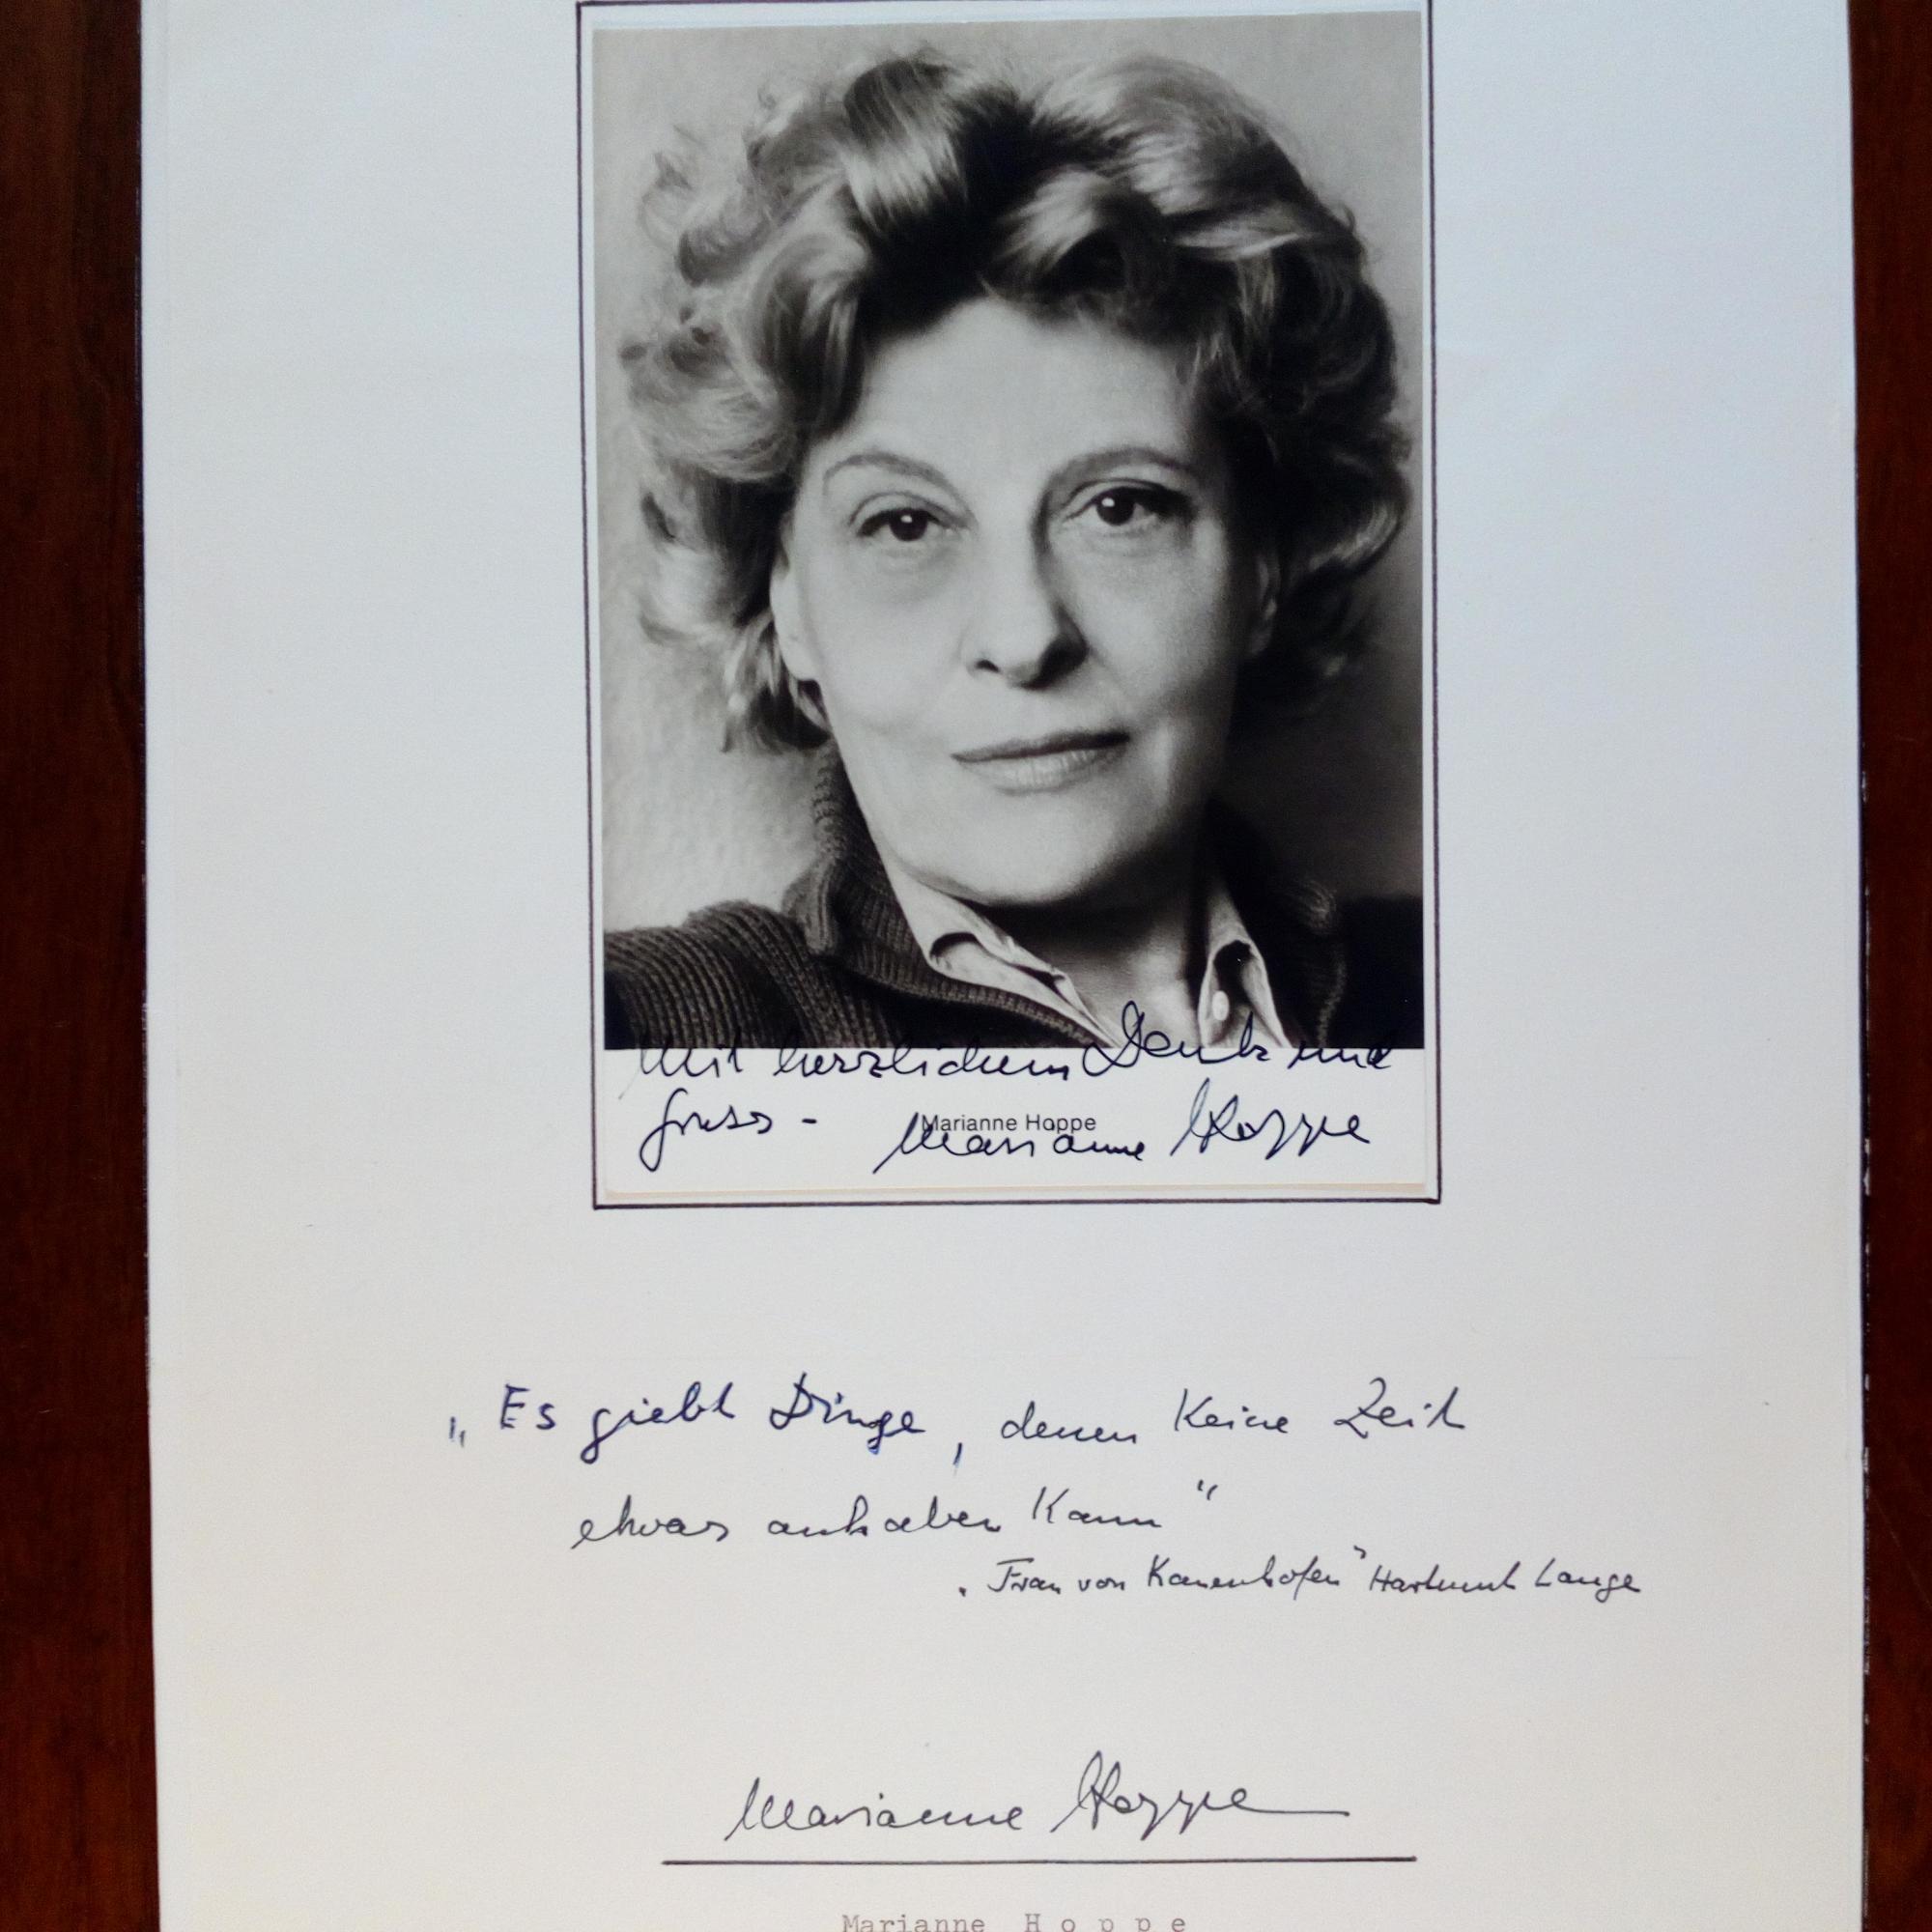 Mit herzlichem Dank und
Gruss -
Marianne Hoppe
Marianne Hoppe
„Es giebt Dinge, denen Keine Zeit
etwas anhaben Kann“
„Frau von Kauenhofen“ Hartmut Lange
Marianne Hoppe
Marianne Hoppe